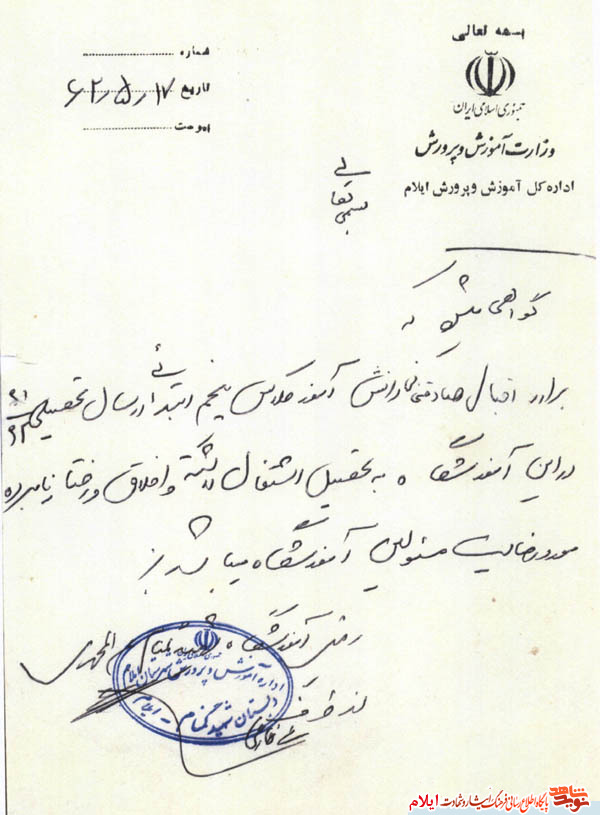 بسمه تعالی
جمهوری اسلامی ایران
وزارت آموزش و پرورش
اداره کل آموزش و پرورش ایلام
شماره
تاریخ ۶۲/۵/۱۷
پیوست
بسمی تعالی
گواهی میشود که
برادر اقبال صادقی دانش آموز کلاس پنجم ابتدائی در سال تحصیلی ۶۱/۶۲
در این آموزشگاه به تحصیل اشتغال داشته و اخلاق و رفتار نامبرده
مورد رضایت مسئولین آموزشگاه میباشد
رئیس آموزشگاه شهید
اداره آموزش و پرورش شهرستان ایلام
دبستان شهید
ایلام
نوید شاهد
پایگاه اطلاع رسانی فرهنگ ایثار و شهادت ایلام